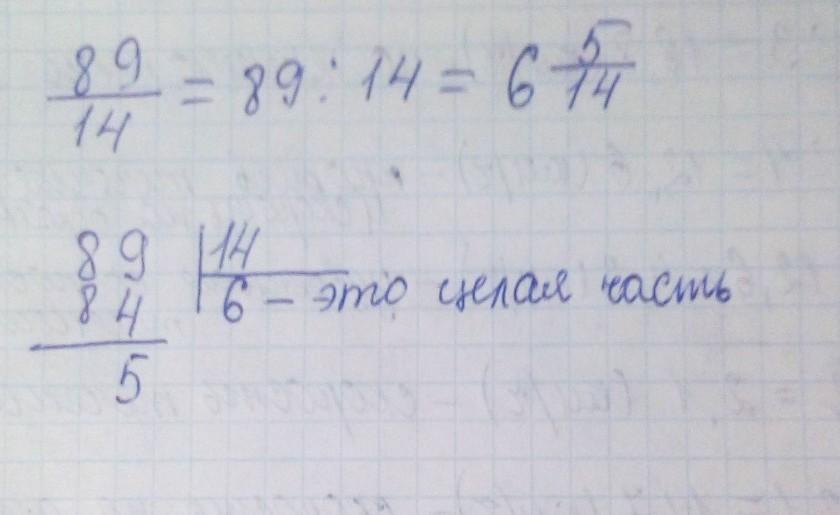 89/14 = 89 : 14 = 6 5/14
89 | 14
84 | 6 – это целая часть
5